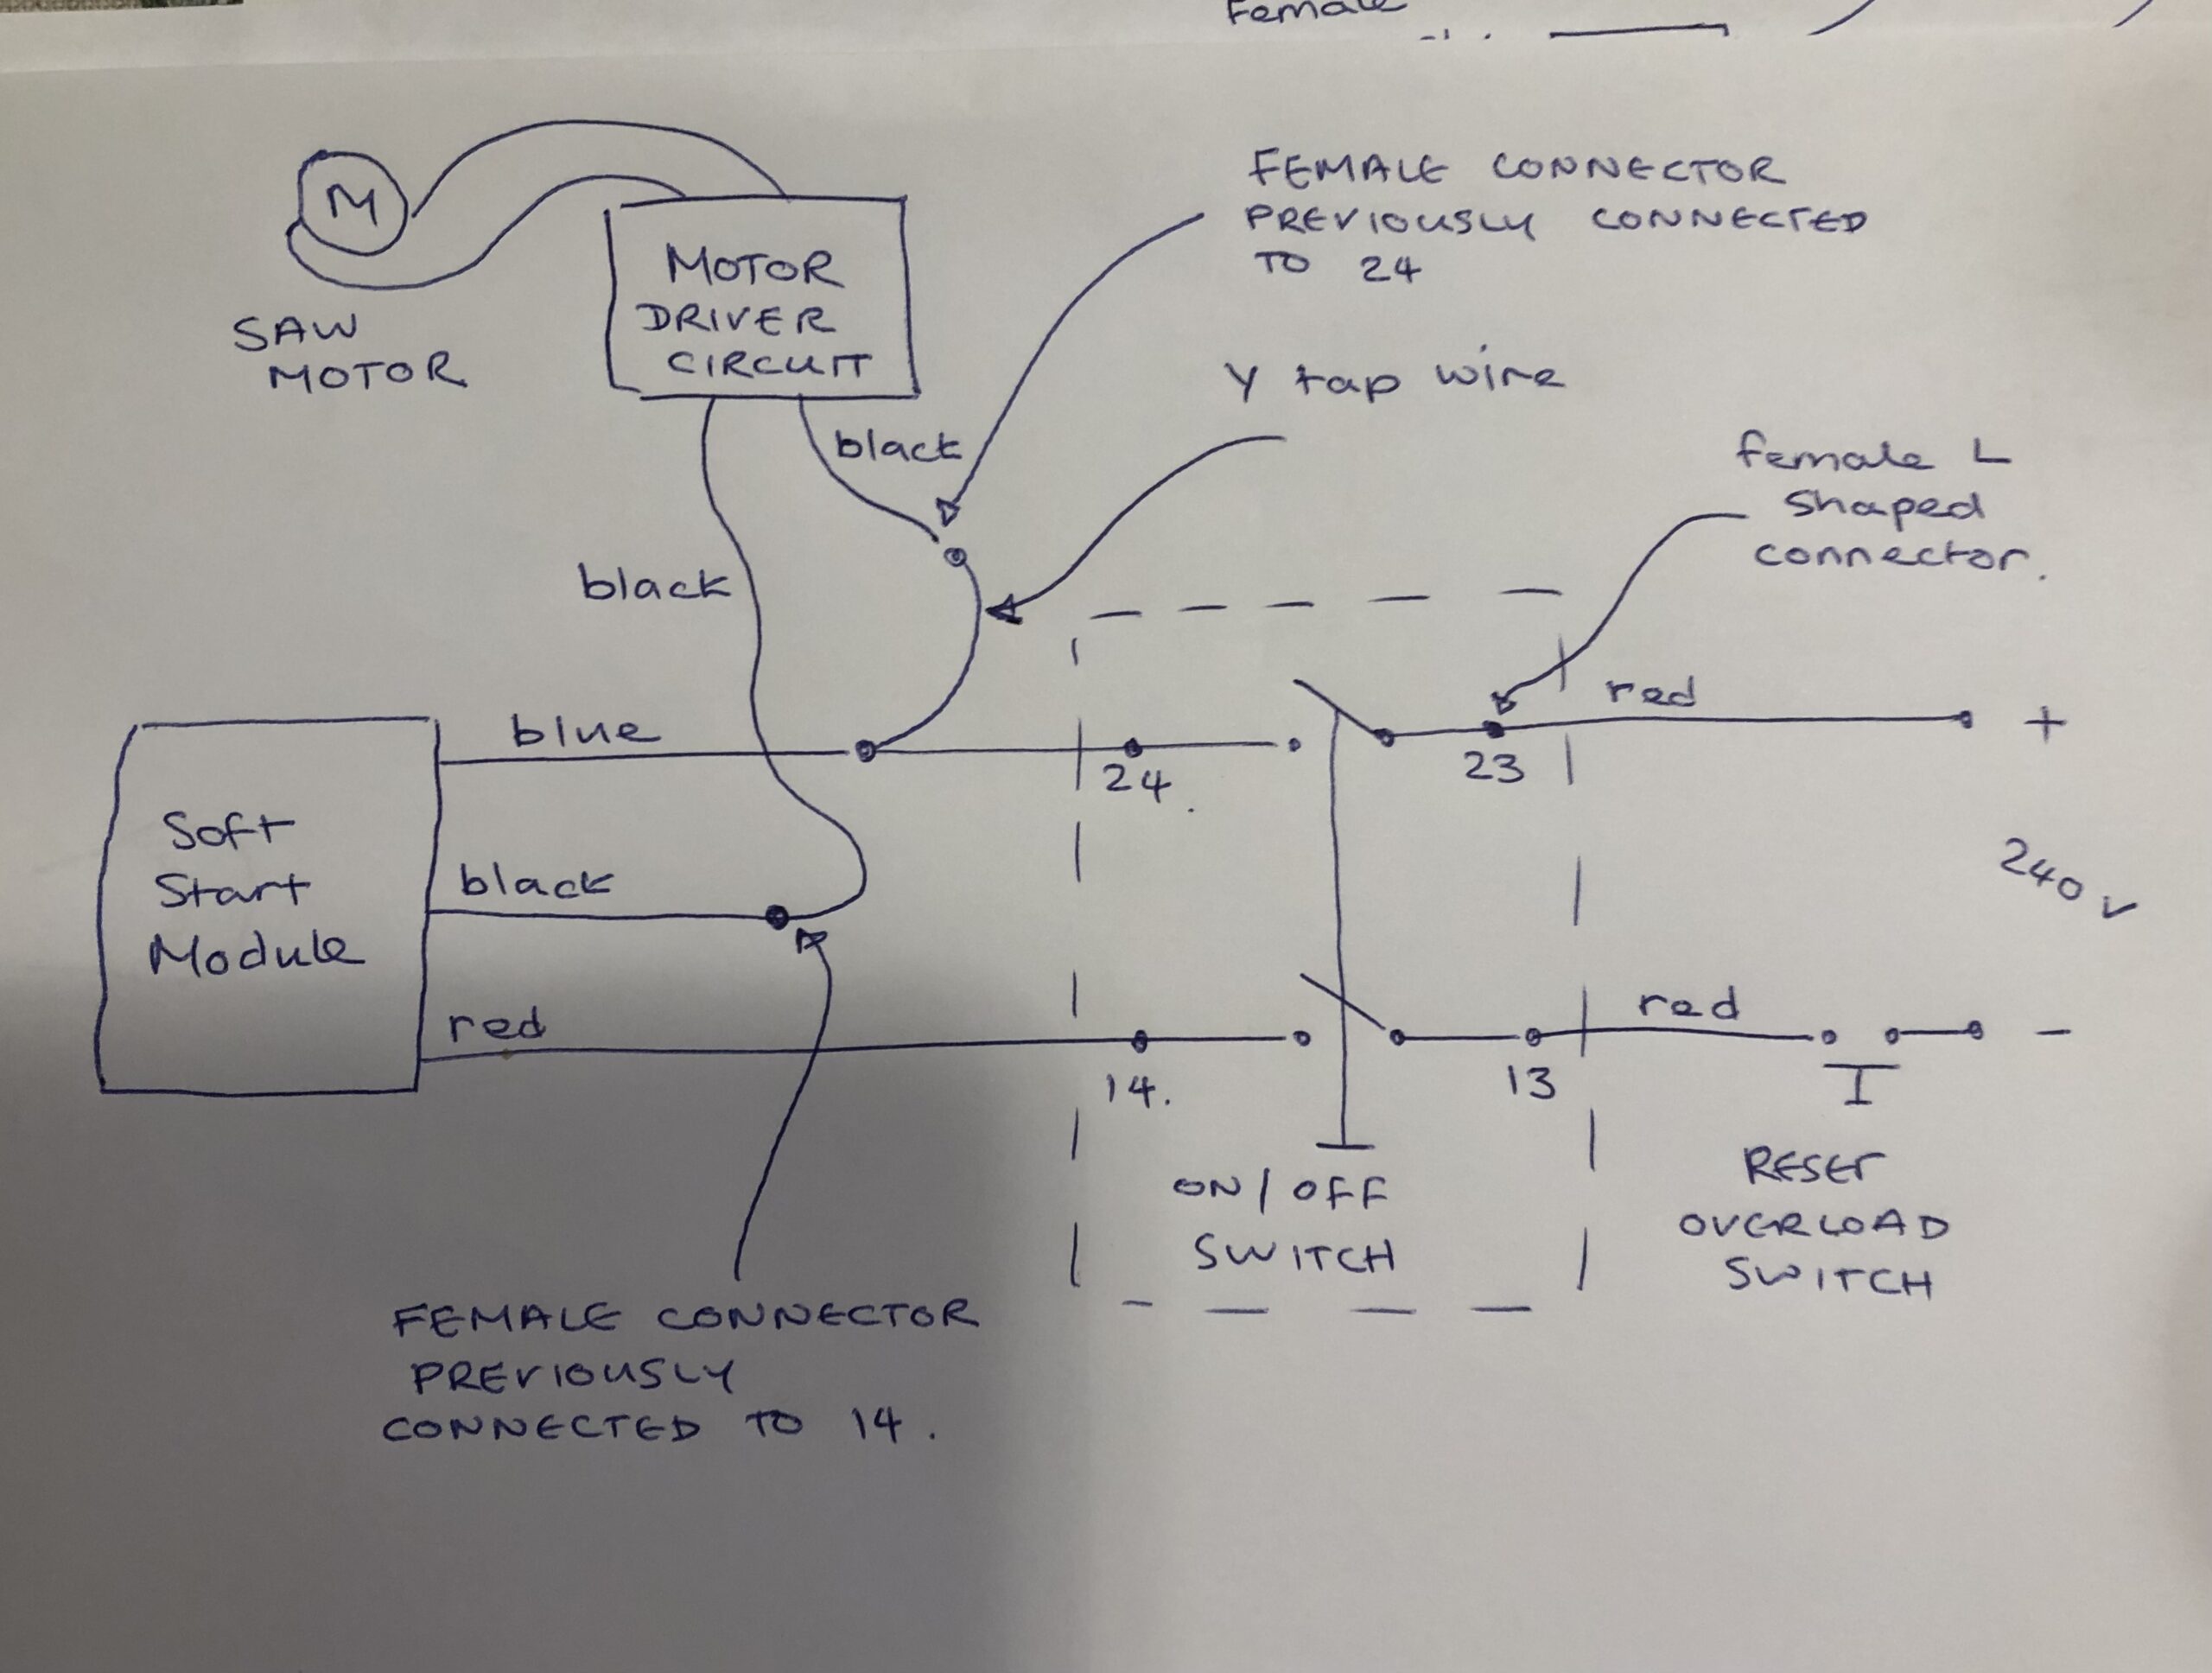 Female
M
SAW
MOTOR
MOTOR
DRIVER
CIRCUIT
FEMALE CONNECTOR
PREVIOUSLY CONNECTED
TO 24
Y tap wire
female L
shaped
connector.
black
black
blue
24.
23
red
+
240 V
Soft
Start
Module
black
red
14.
13
red
-
ON/OFF
SWITCH
RESET
OVERLOAD
SWITCH
FEMALE CONNECTOR
PREVIOUSLY
CONNECTED TO 14.